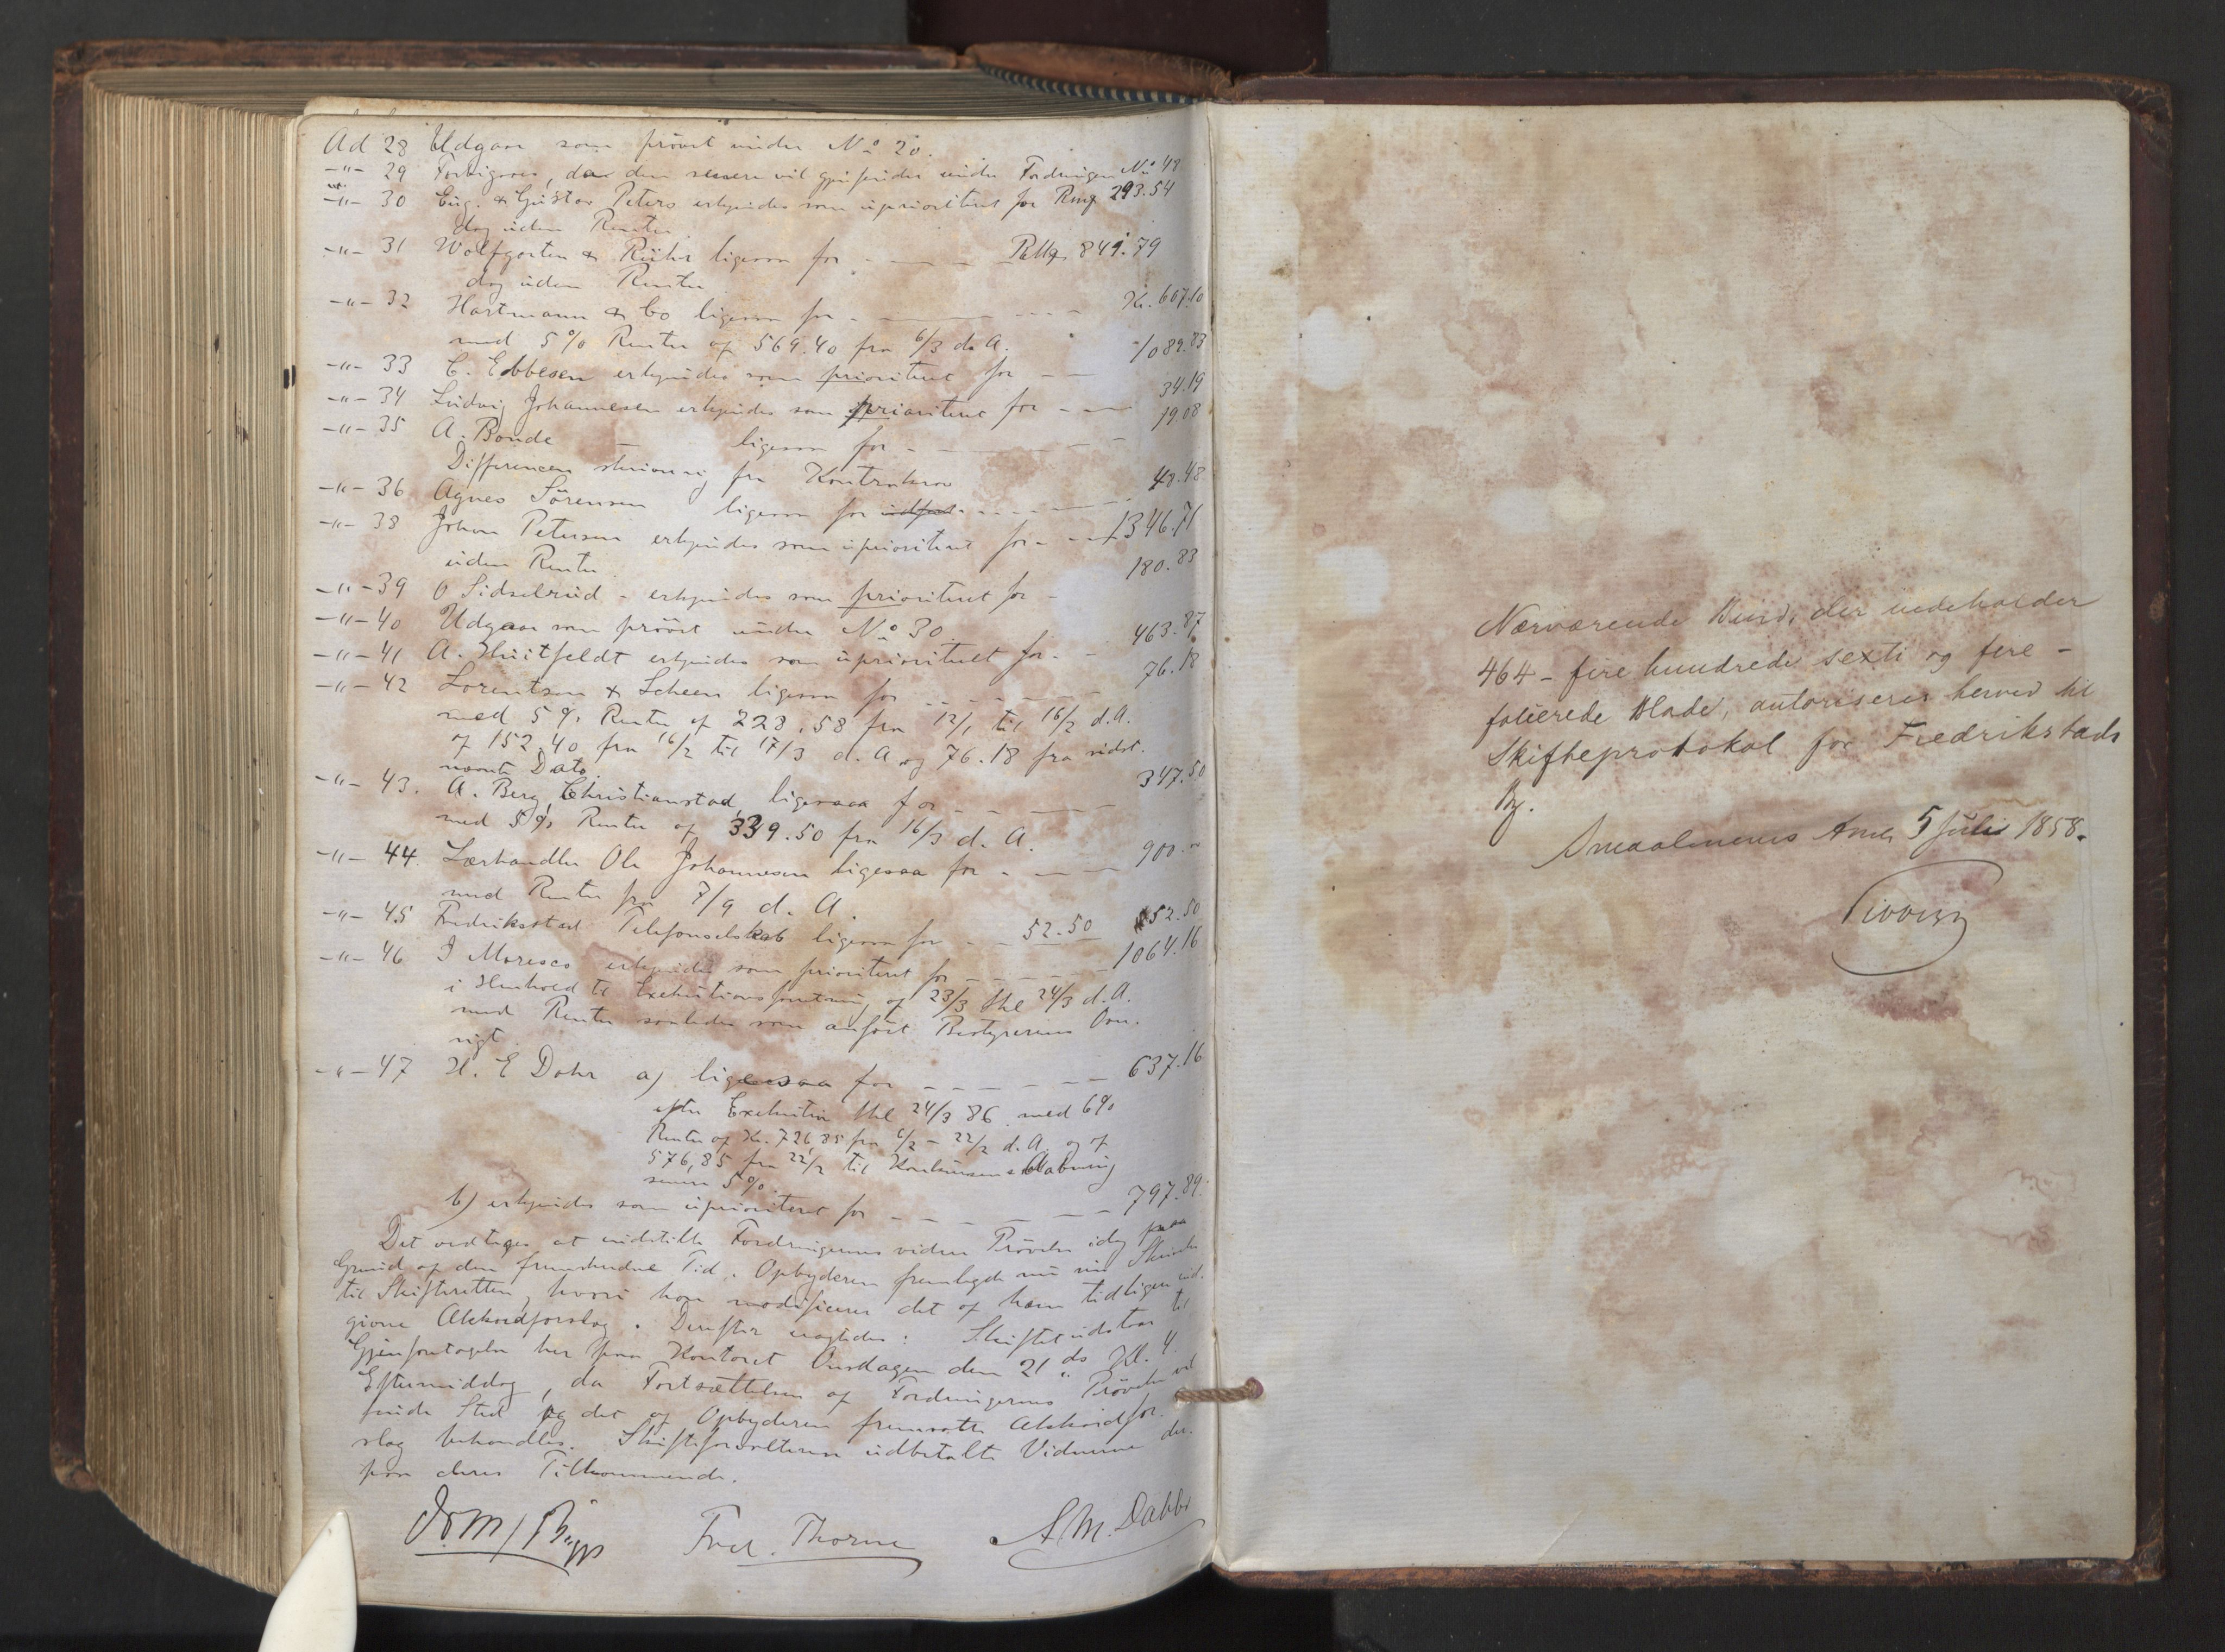 Ad 28 Udgaar som prövet under No 20.
-"- 29 Forbigaaes, da den senere vil gjenfindes under Fordringen No 49
-"- 30 Eug. & Gustav Peters erkjendes som uprioriteret for Rmk 293.54
dog uden Renter
-"- 31 Wolfgarten & Rühr ligesaa for - - - 849.79
dog uden Renter
-"- 32 Hartmann & Co ligesaa for - - - Kr. 607.10
med 5 % Renter af 569.40 fra 6/3 d. A.
-"- 33 C. Ebbesen erkjendes som prioriteret for - - 1089.83
-"- 34 Ludvig Johannesen erkjendes som prioriteret for - - 34.19
-"- 35 A. Bonde — ligesaa for - - - 19.08
Differencen fra
-"- 36 Agnes Sörensen ligesaa for - - - 48.48
-"- 38 Johan Petersen erkjendes som uprioriteret for - - 1346.71
uden Renter
-"- 39 O Sidselrud - erkjendes som prioriteret for - 180.83
-"- 40 Udgaar som prövet under No 30
-"- 41 A. Huitfeldt erkjendes som uprioritett for - 463.87
-"- 42 Lorentzen & Scheen ligesaa for - - - 76.18
med 5 % Renter af 228,58 fra 12/1 til 16/2 d. A.
af 152.40 fra 16/2 til 17/3 d. A og 76.18 fra sidst-
nævnte Dato.
-"- 43. A. Berg, Christianstad, ligesaa for - - - 347.50
med 5 % Renter af 339.50 fra 16/3 d. A.
-"- 44. Lærhandler Ole Johannesen ligesaa for - - - 900.00
med Renter fra 7/9 d. A.
-"- 45 Fredriksstad Telefonselskab ligesaa for - - 52.50 52.50
-"- 46 I Moresco erkjendes som prioriteret for - - - 1064.16
i Henhold til Exekutionsforretning af 23/3 thl 24/3 d. A.
med Renter saaledes som anfört Bestyrerens Over-
sigt.
-"- 47 H. E Dohr a) ligesaa for - - - 637.16
efter Exekution thl 24/3 86 med 6 %
Renter af Kr. 726,85 fra 6/2 - 22/2 d. A. og af
576,85 fra 22/2 til Konkursens Aabning
senere 5 %.
b) erkjendes som uprioriteret for - - - 797.89.
Det vedtages at indstille Fordringernes videre Prövelse idag paa
Grund af den fremskredne Tid. Opbyderen fremlagde nu en Skrivelse
til Skifteretten, hvori han modificerer det af ham tidligere ind-
givne Akkordforslag. Derefter vagtedes: Skiftet udstaar til
Gjenforetagelse her paa Kontoret Onsdagen den 21 ds Kl. 4
Eftermiddag, da Fortsættelsen af Fordringernes Prövelse vil
finde Sted og det af Opbyderen fremsatte Akkordfor-
slag behandles. Skifteforvalteren udbetalte Vidnerne der-
paa deres Tilkommende.
Fred. Thorne A. M. Dabbe
Nærværende Bind, der indeholder
464 - fire hundrede sexti og fire -
folierede Blade, autoriseres herved til
Skifteprotokol for Fredrikstads
By.
Smaalenenes Amt, 5 Juli 1858.